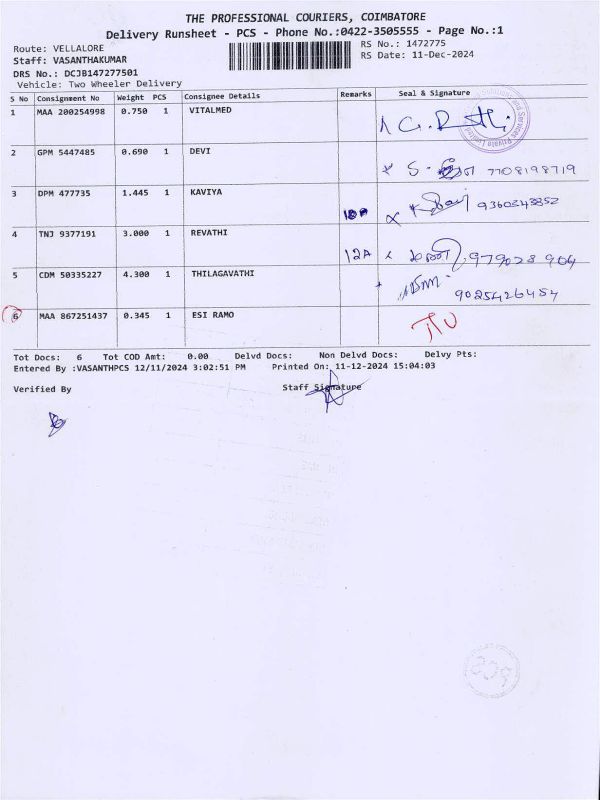 THE PROFESSIONAL COURIERS, COIMBATORE
Delivery Runsheet - PCS - Phone No.:0422-3505555 - Page No.:1
Route: VELLALORE
RS No.: 1472775
Staff: VASANTHAKUMAR
RS Date: 11-Dec-2024
DRS No.: DCJB147277501
Vehicle: Two Wheeler Delivery
S No Consignment No Weight PCS Consignee Details Remarks Seal & Signature
1 MAA 200254998 0.750 1 VITALMED
2 GPM 5447485 0.690 1 DEVI 7708198719
3 DPM 477735 1.445 1 KAVIYA 9360343852
4 TNJ 9377191 3.000 1 REVATHI 12A
5 CDM 50335227 4.300 1 THILAGAVATHI 9025426454
6 MAA 867251437 0.345 1 ESI RAMO
Tot Docs: 6 Tot COD Amt: 0.00 Delvd Docs: Non Delvd Docs: Delvy Pts:
Entered By :VASANTHPCS 12/11/2024 3:02:51 PM Printed On: 11-12-2024 15:04:03
Verified By Staff Signature